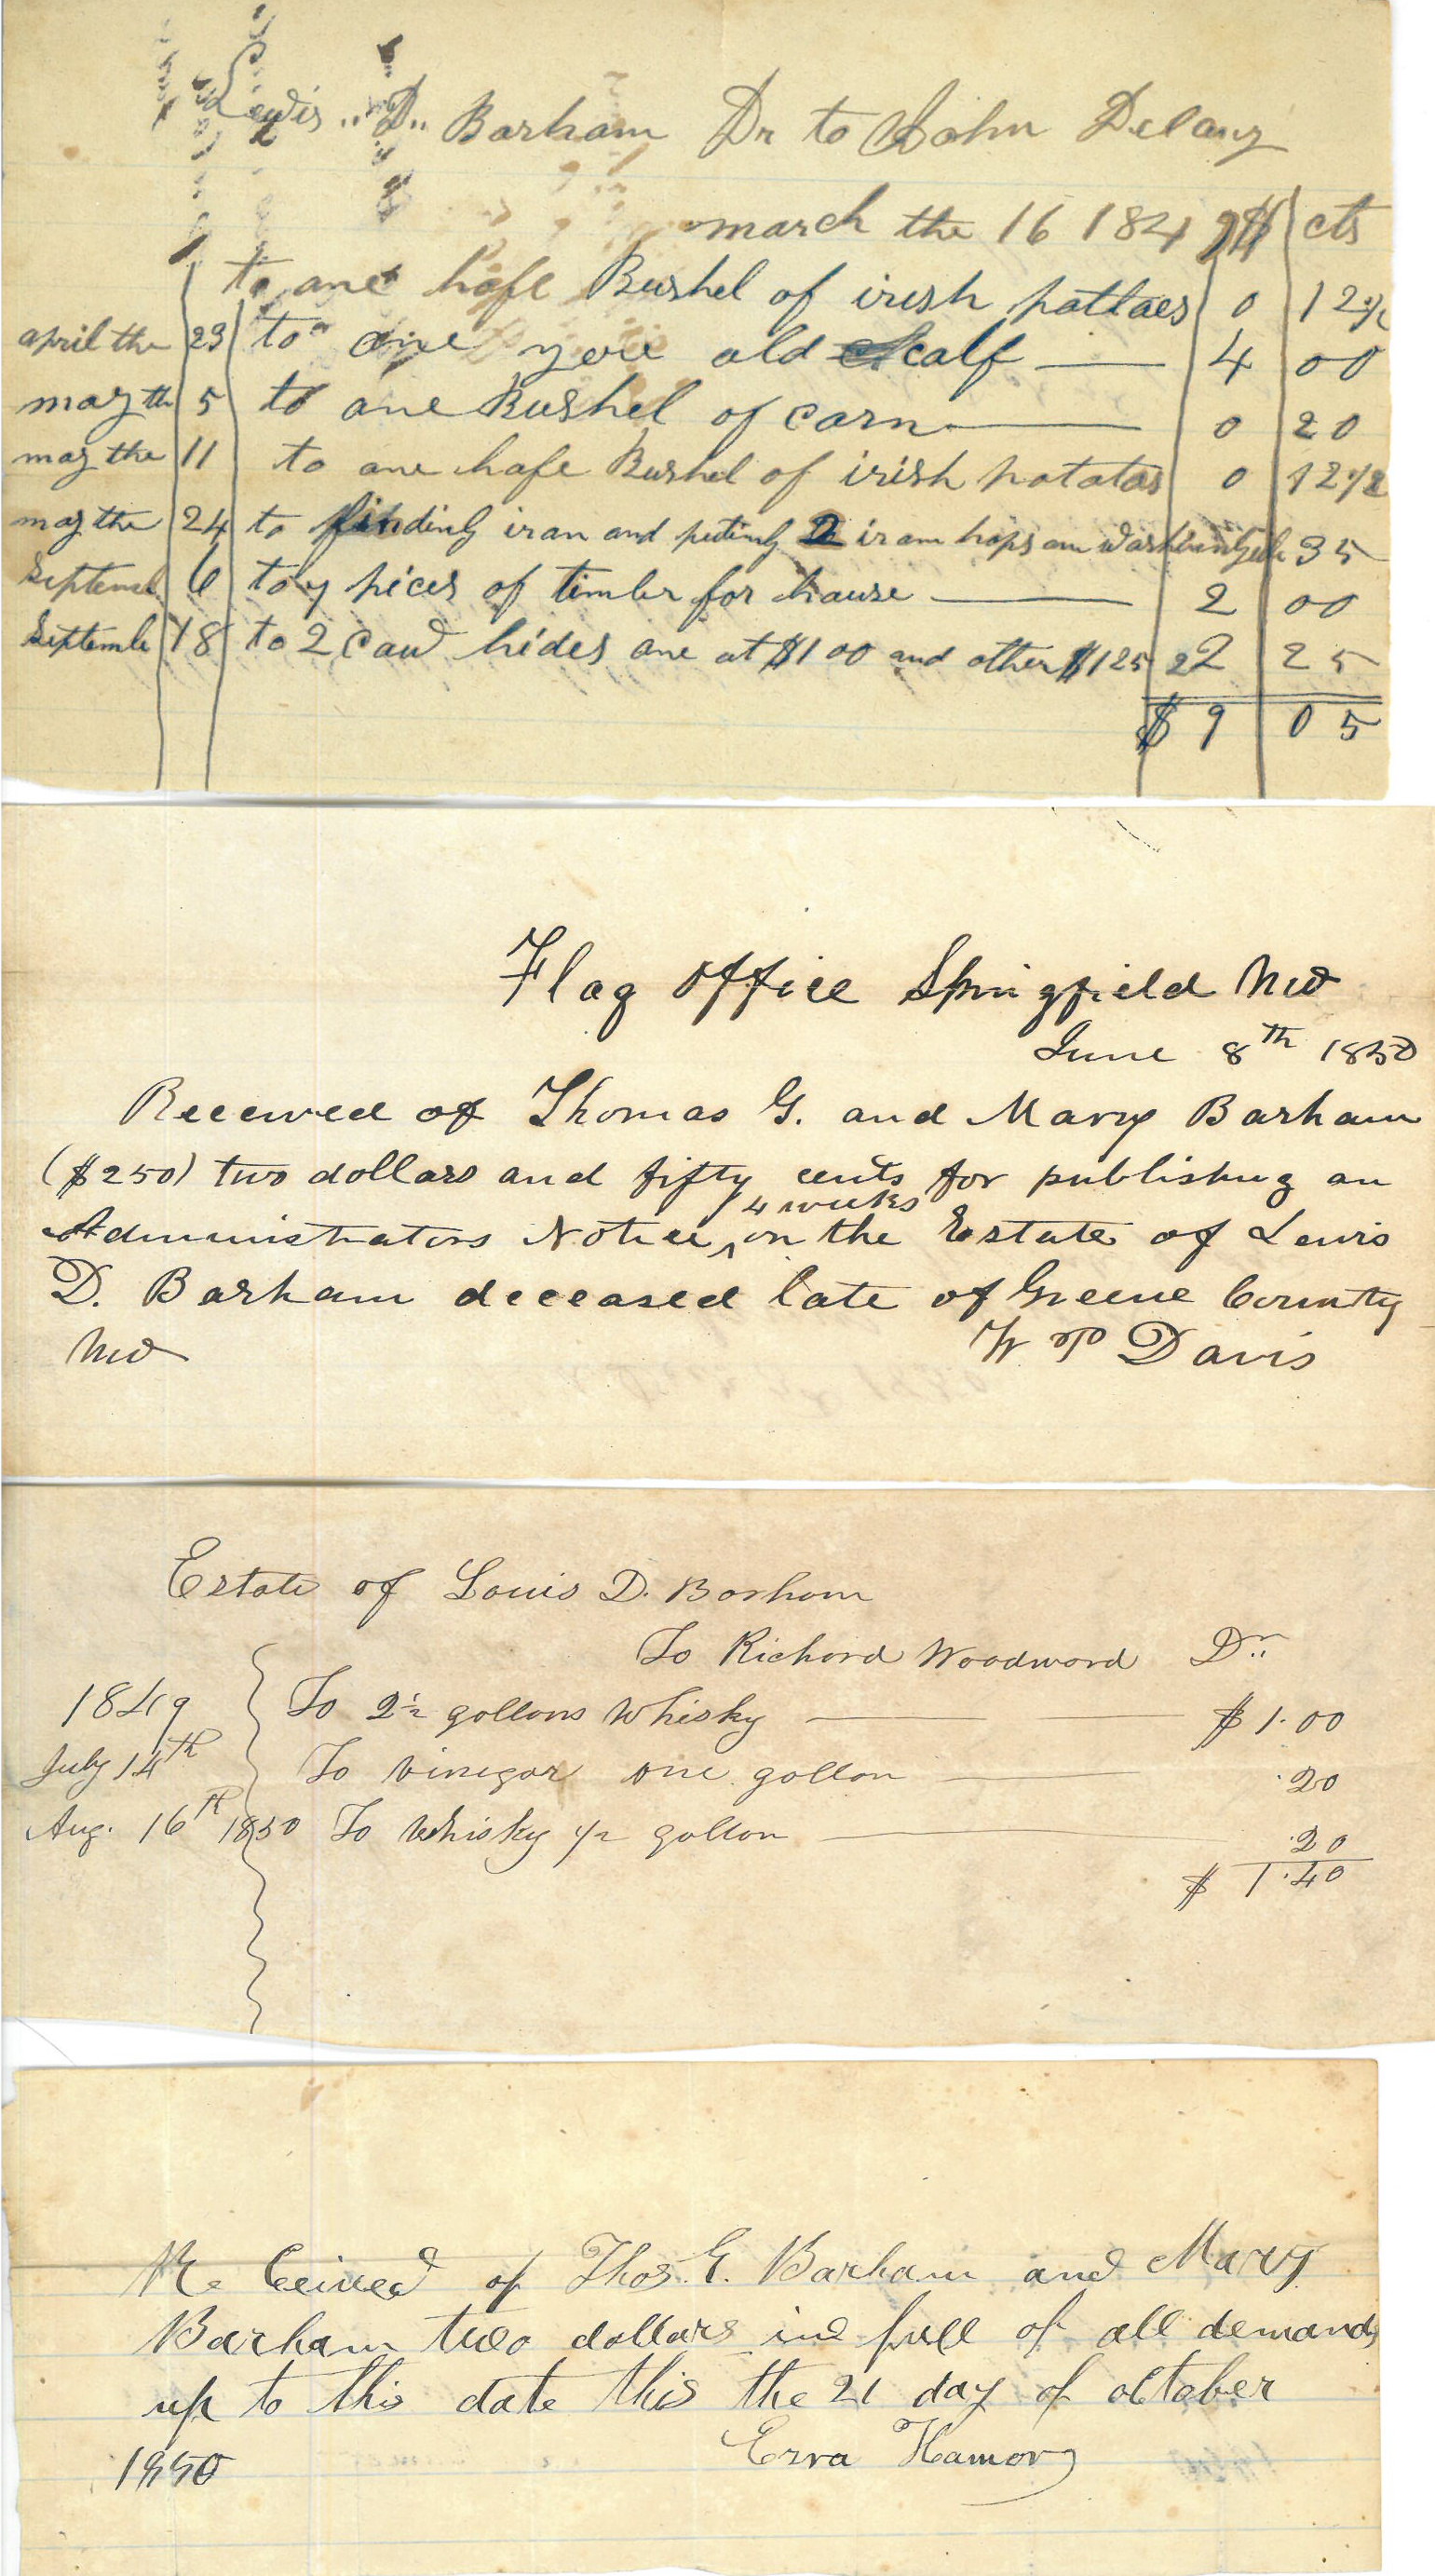 Lewis "D" Barham Dr to John Delany
march the 16 1849 $ cts
to one hafe Bushel of irish pottaes 0 12½
april the 23 to one yere old calf 4 00
may th 5 to one Bushel of corn 0 20
may the 11 to one hafe Bushel of irish potatas 0 12½
may the 24 to finding iran and puting 2 iram hops on 35
Septemb 6 to y pices of timber for hause 2 00
Septembe 18 to 2 caw hides one at $1 00 and other $1 25 2 25
$ 9 05
Flag Office Springfield Mo
June 8th 1850
Received of Thomas G. and Mary Barham
($250) two dollars and fifty cents for publishing an
Administrators Notice, 4 weeks on the Estate of Lewis
D. Barham deceased late of Greene County
Mo W P Davis
Estate of Louis D. Barham
To Richard Woodward Dr..
1849 To 2½ gallons Whisky $1.00
July 14th To vinegar one gallon .20
Aug. 16th 1850 To Whisky ½ gallon .20
$ 1.40
Re Ceived of Thos. G. Barham and Mary
Barham two dollars in full of all demands
up to this date this the 21 day of october
1850 Ezra Hamory